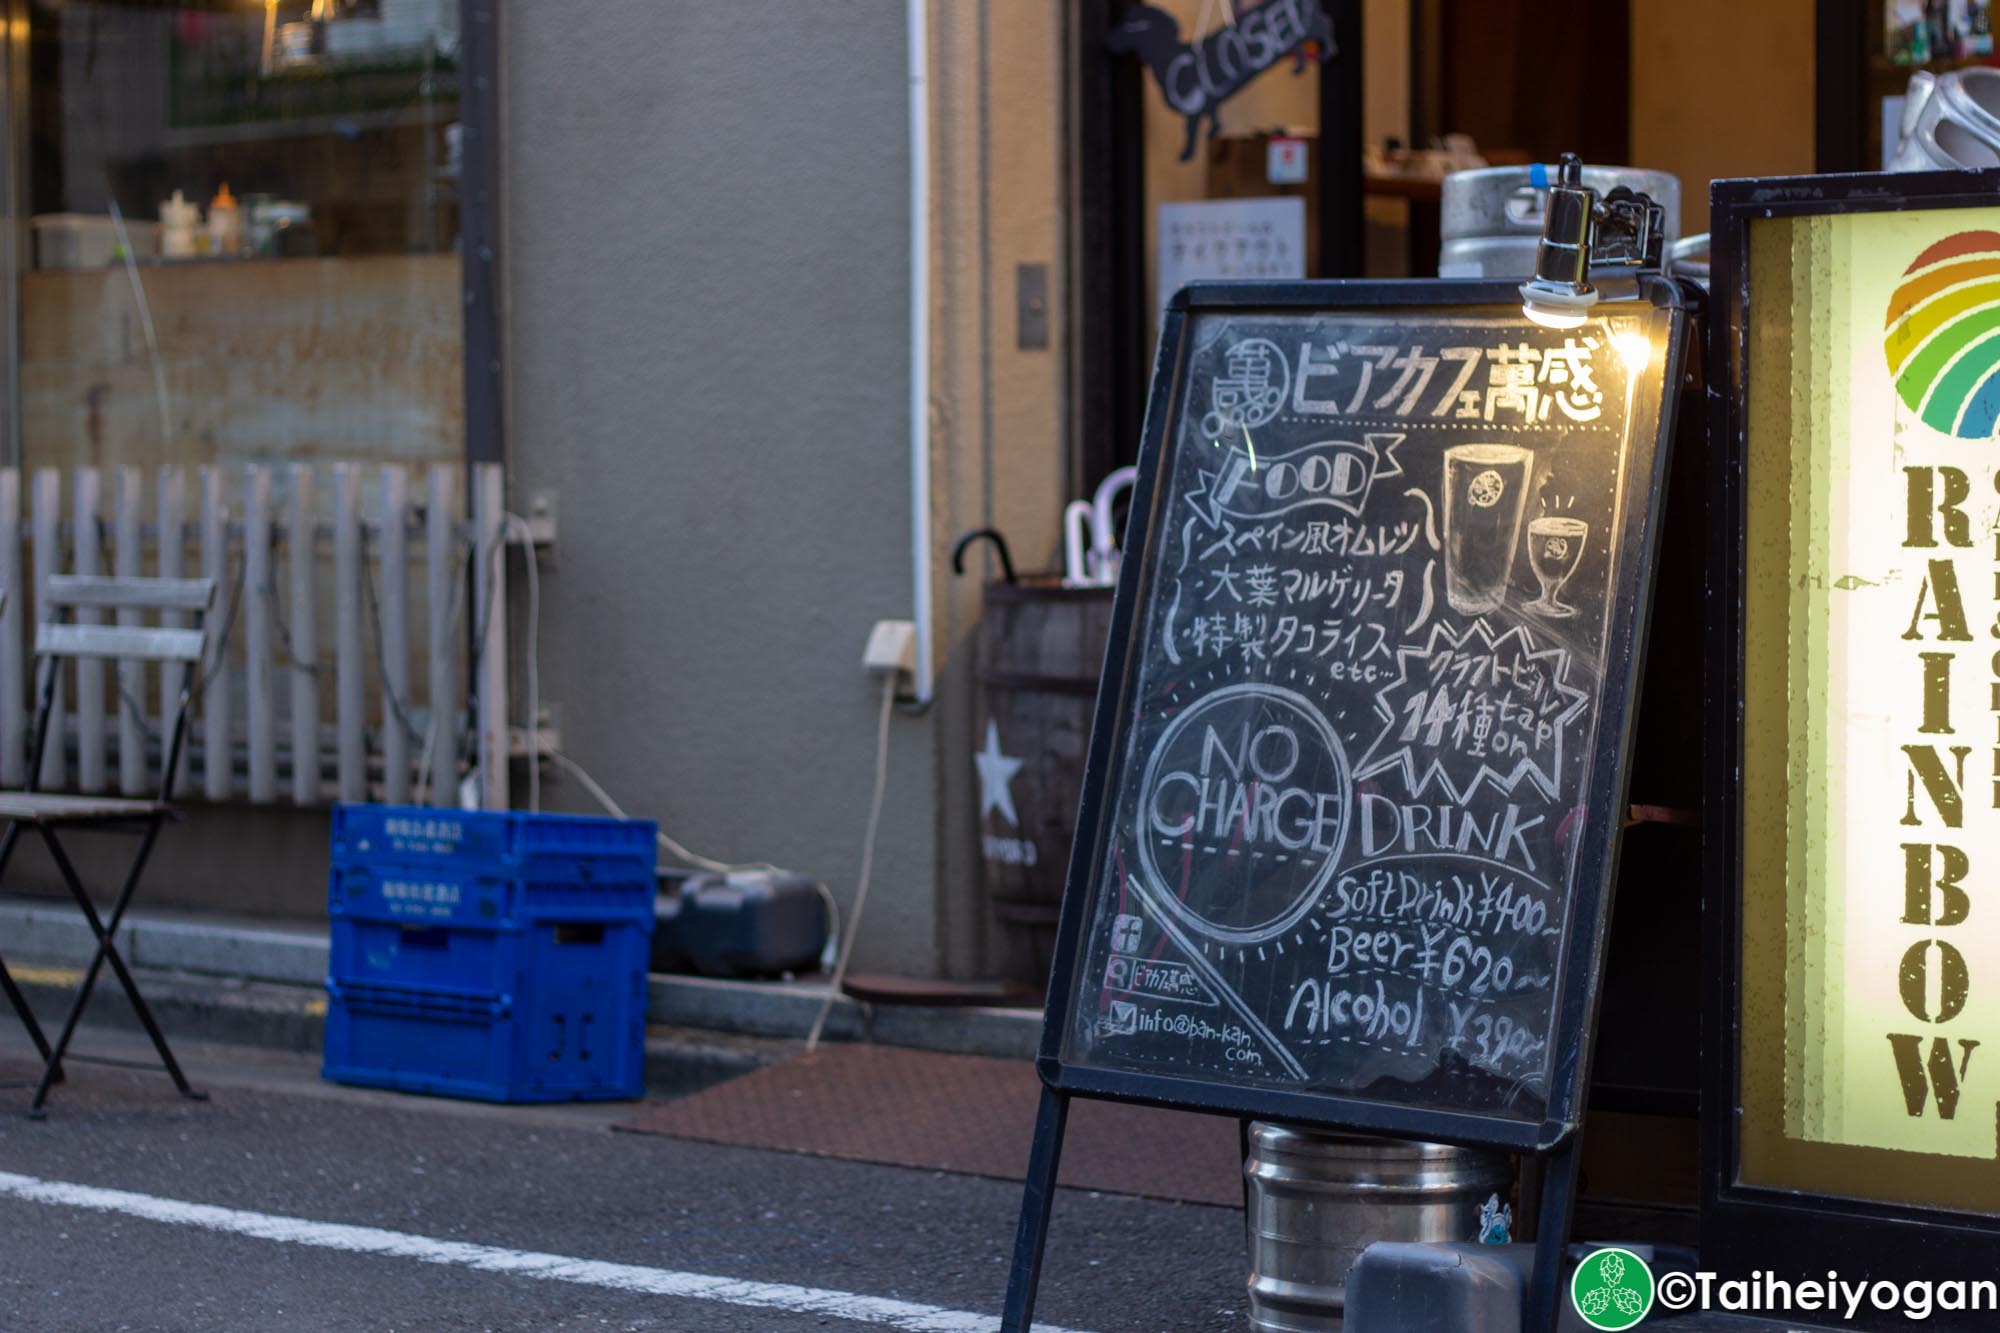 CLOSED
テイクアウト
ビアカフェ萬感
FOOD
・スペイン風オムレツ
・大葉マルゲリータ
・特製タコライス
etc…
クラフトビール
14種tap
on
NO
CHARGE
DRINK
Soft Drink ¥400~
Beer ¥620~
Alcohol ¥390~
ビアカフェ萬感
info@ban-kan.
com
RAINBOW
©Taiheiyogan